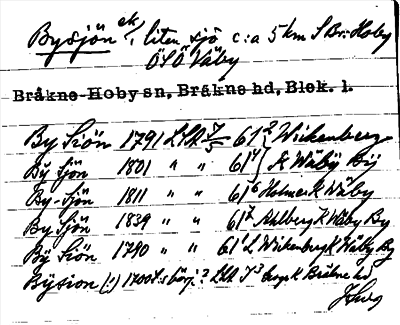 Bysjön ek., liten sjö c:a 5 km S Br:Hoby
ÖSÖ Väby
Bråkne-Hoby sn, Bråkne hd, Blek. l.
By Siön 1791 LSA 61² Wickenberg
By Sjön 1801 " " 61⁴ K Wäby By
By-Sjön 1811 " " 61⁶ Holmer K Wäby
By Sjön 1839 " " 61⁷ Ahlberg K Wäby By
By Siön 1790 " " 61¹ L Wikenberg K Wäby By
Bysion (!) 1700t:s börj.? LSA Y³ K Bråkne hd